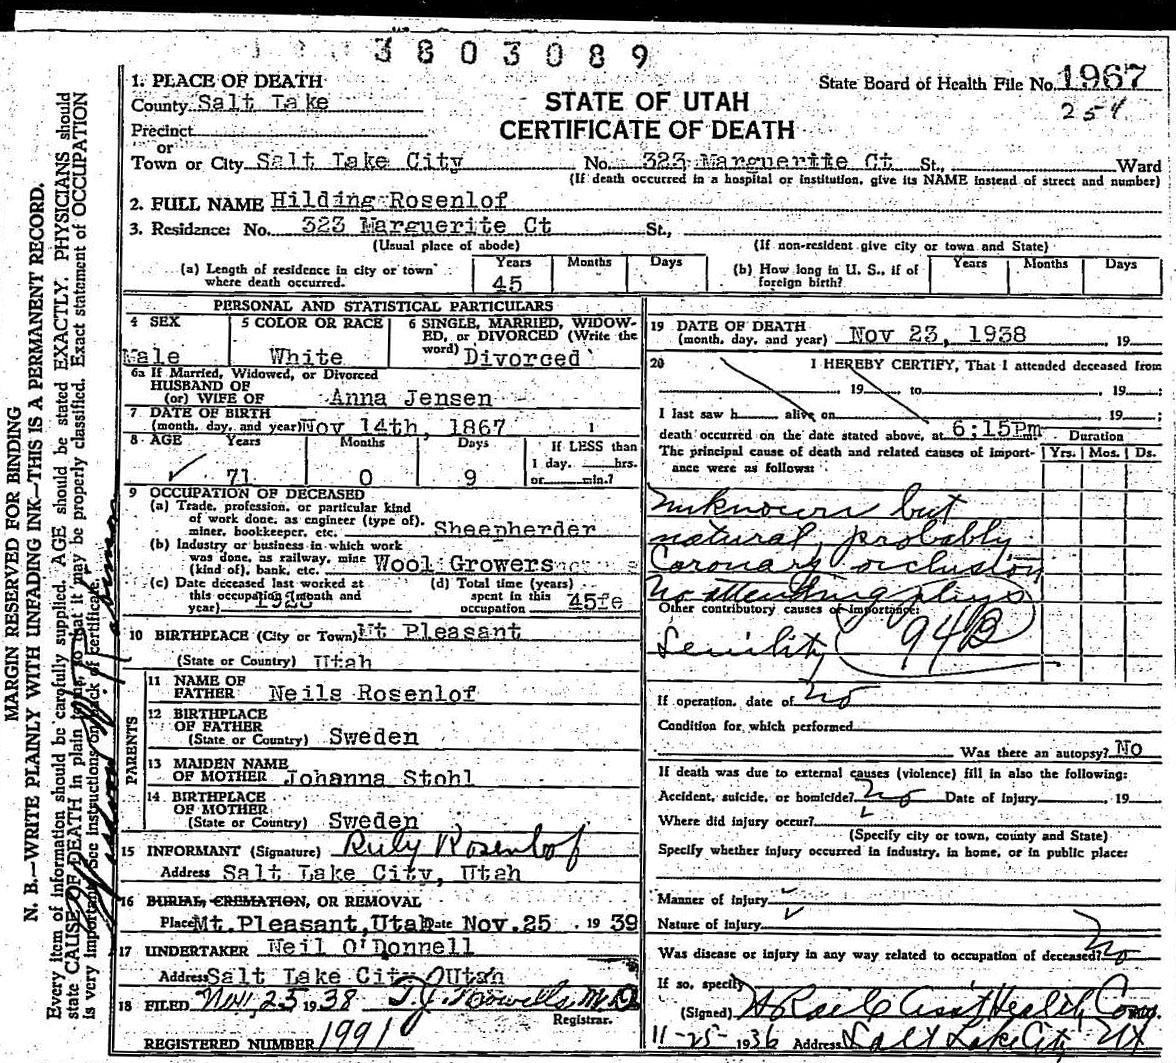 3803089
1. PLACE OF DEATH
County Salt Lake
Precinct
or
Town or City Salt Lake City No. 323 Marguerite Ct St., Ward
(If death occurred in a hospital or institution, give its NAME instead of street and number)
STATE OF UTAH
CERTIFICATE OF DEATH
State Board of Health File No. 1967
254
2. FULL NAME Hilding Rosenlof
3. Residence: No. 323 Marguerite Ct St.,
(Usual place of abode) (If non-resident give city or town and State)
(a) Length of residence in city or town where death occurred. Years 45 Months Days
(b) How long in U. S., if of foreign birth? Years Months Days
PERSONAL AND STATISTICAL PARTICULARS
4 SEX Male
5 COLOR OR RACE White
6 SINGLE, MARRIED, WIDOWED, or DIVORCED (Write the word) Divorced
6a If Married, Widowed, or Divorced
HUSBAND OF
(or) WIFE OF Anna Jensen
7 DATE OF BIRTH
(month, day, and year) Nov 14th, 1867
8 AGE Years 71 Months 0 Days 9 If LESS than 1 day, hrs. or min.?
9 OCCUPATION OF DECEASED
(a) Trade, profession, or particular kind
of work done, as engineer (type of),
miner, bookkeeper, etc. Sheepherder
(b) Industry or business in which work
was done, as railway, mine
(kind of), bank, etc. Wool Growers
(c) Date deceased last worked at
this occupation (month and
year) 1928
(d) Total time (years)
spent in this
occupation 45
10 BIRTHPLACE (City or Town) Mt Pleasant
(State or Country) Utah
PARENTS
11 NAME OF
FATHER Neils Rosenlof
12 BIRTHPLACE
OF FATHER
(State or Country) Sweden
13 MAIDEN NAME
OF MOTHER Johanna Stohl
14 BIRTHPLACE
OF MOTHER
(State or Country) Sweden
15 INFORMANT (Signature) Ruby Rosenlof
Address Salt Lake City, Utah
16 BURIAL, CREMATION, OR REMOVAL
Place Mt. Pleasant, Utah Date Nov. 25 . 19 39
17 UNDERTAKER Neil O'Donnell
Address Salt Lake City Utah
18 FILED Nov. 25 1938 T.J. Howells M.D.
Registrar.
REGISTERED NUMBER 1991
19 DATE OF DEATH
(month, day, and year) Nov 23, 1938 , 19
20 I HEREBY CERTIFY, That I attended deceased from
19 to , 19 ;
I last saw h alive on , 19 ;
death occurred on the date stated above, at 6:15Pm Duration
The principal cause of death and related causes of importance were as follows: Yrs. Mos. Ds.
Unknown but
natural, probably
Coronary occlusion
No attending phys
Other contributory causes of importance:
Senility 94B
If operation, date of no
Condition for which performed
Was there an autopsy? No
If death was due to external causes (violence) fill in also the following:
Accident, suicide, or homicide? no Date of injury , 19
Where did injury occur?
(Specify city or town, county and State)
Specify whether injury occurred in industry, in home, or in public place:
Manner of injury
Nature of injury
Was disease or injury in any way related to occupation of deceased? No
If so, specify
(Signed) Asst Health Com
11-25-1936 Address Salt Lake City Ut
MARGIN RESERVED FOR BINDING
N. B.—WRITE PLAINLY WITH UNFADING INK—THIS IS A PERMANENT RECORD.
Every item of information should be carefully supplied. AGE should be stated EXACTLY. PHYSICIANS should
state CAUSE OF DEATH in plain terms, so that it may be properly classified. Exact statement of OCCUPATION
is very important. See instructions on back of certificate.